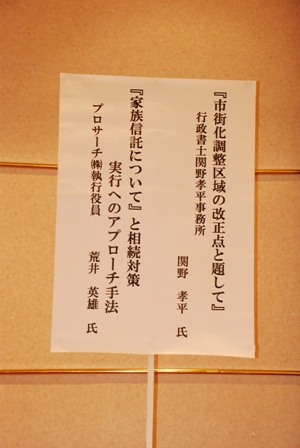 『市街化調整区域の改正点と題して』
行政書士関野孝平事務所
関野 孝平 氏
『家族信託について』と相続対策
実行へのアプローチ手法
プロサーチ㈱執行役員 荒井 英雄 氏